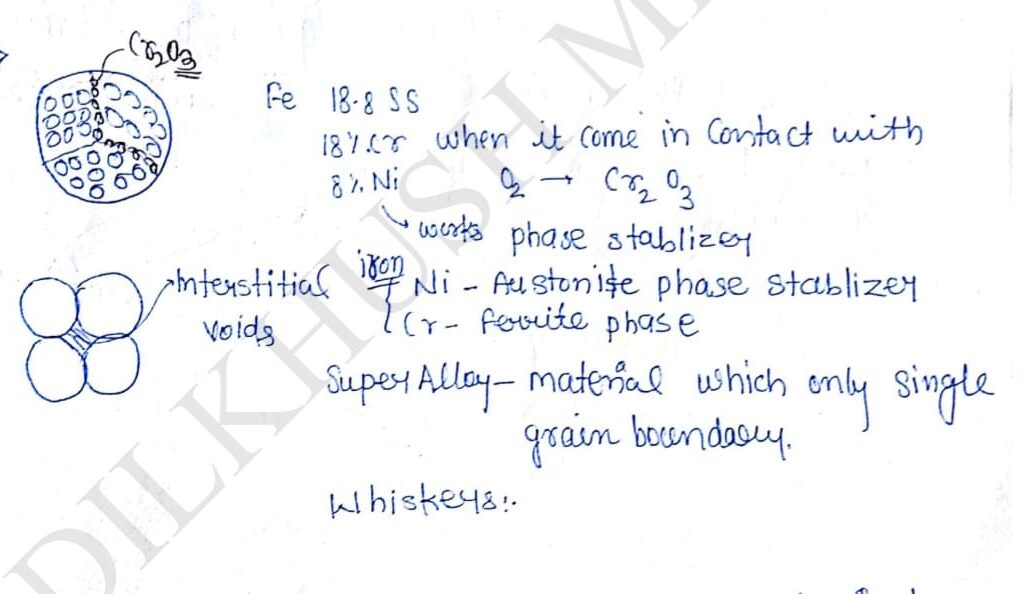 Cr2O3
Fe 18-8 SS
18%.Cr when it come in Contact with
8%. Ni O2 → Cr2O3
works phase stablizer
Interstitial voids
iron
Ni - Austonite phase stablizer
Cr - ferrite phase
Super Alloy - material which only single
grain boundary.
Whiskers:-
DILKHUSH M